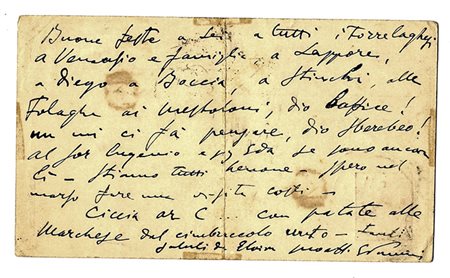 Buone feste a Lei a tutti i Torrelaghesi
a Venanzio e famiglia a Lappore,
a Diego a Boccia, a Stinchi, alle
Folaghe ai mestoloni, dio
un mi ci fà pensare, dio
al sor Eugenio e Eda se sono ancora
lì - Stiano tutti benone spero nel
marzo fare una visita costì -
Ciccia ar C... con patate alle
Marchese dal cimbraccolo unto -
saluti da Elvira